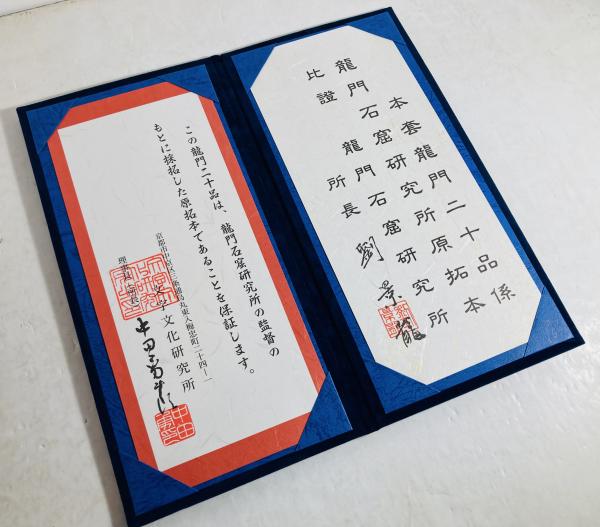 本套龍門二十品係
龍門石窟研究所原拓本
比證
龍門石窟研究所
所長 劉景龍
この龍門二十品は、龍門石窟研究所の監督の
もとに採拓した原拓本であることを保証します。
京都市中京区三条通烏丸東入梅忠町二十四ー一
文字文化研究所
理事長 中田